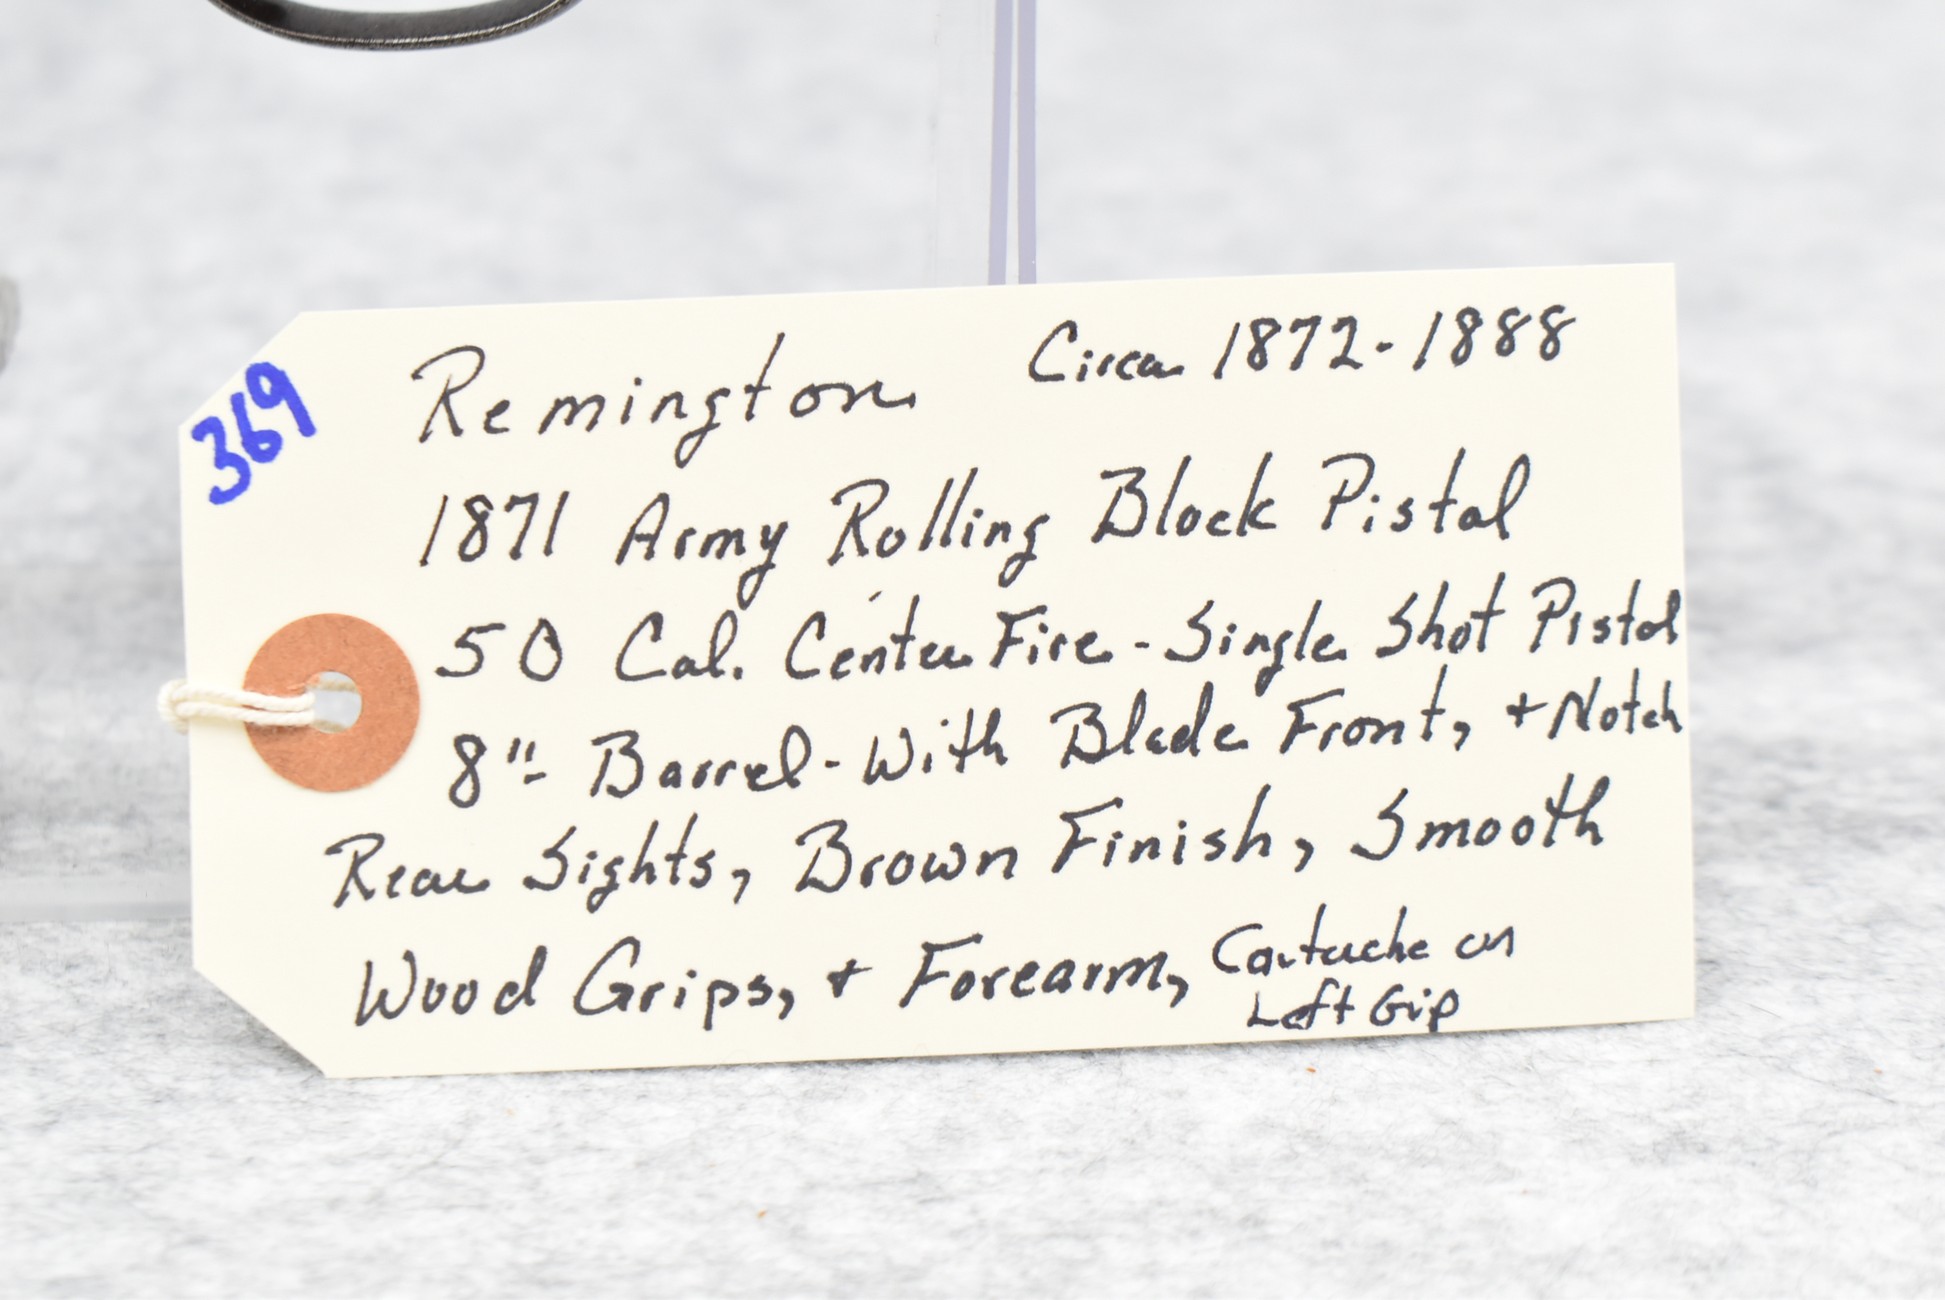 369
Remington Circa 1872-1888
1871 Army Rolling Block Pistol
50 Cal. Center Fire - Single Shot Pistol
8" Barrel - With Blade Front, + Notch
Rear Sights, Brown Finish, Smooth
Wood Grips, + Forearm, Cartouche on
Left Grip